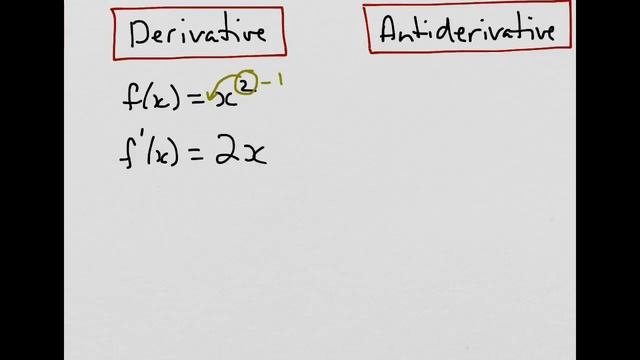 Derivative
Antiderivative
f(x) = x² - 1
f'(x) = 2x